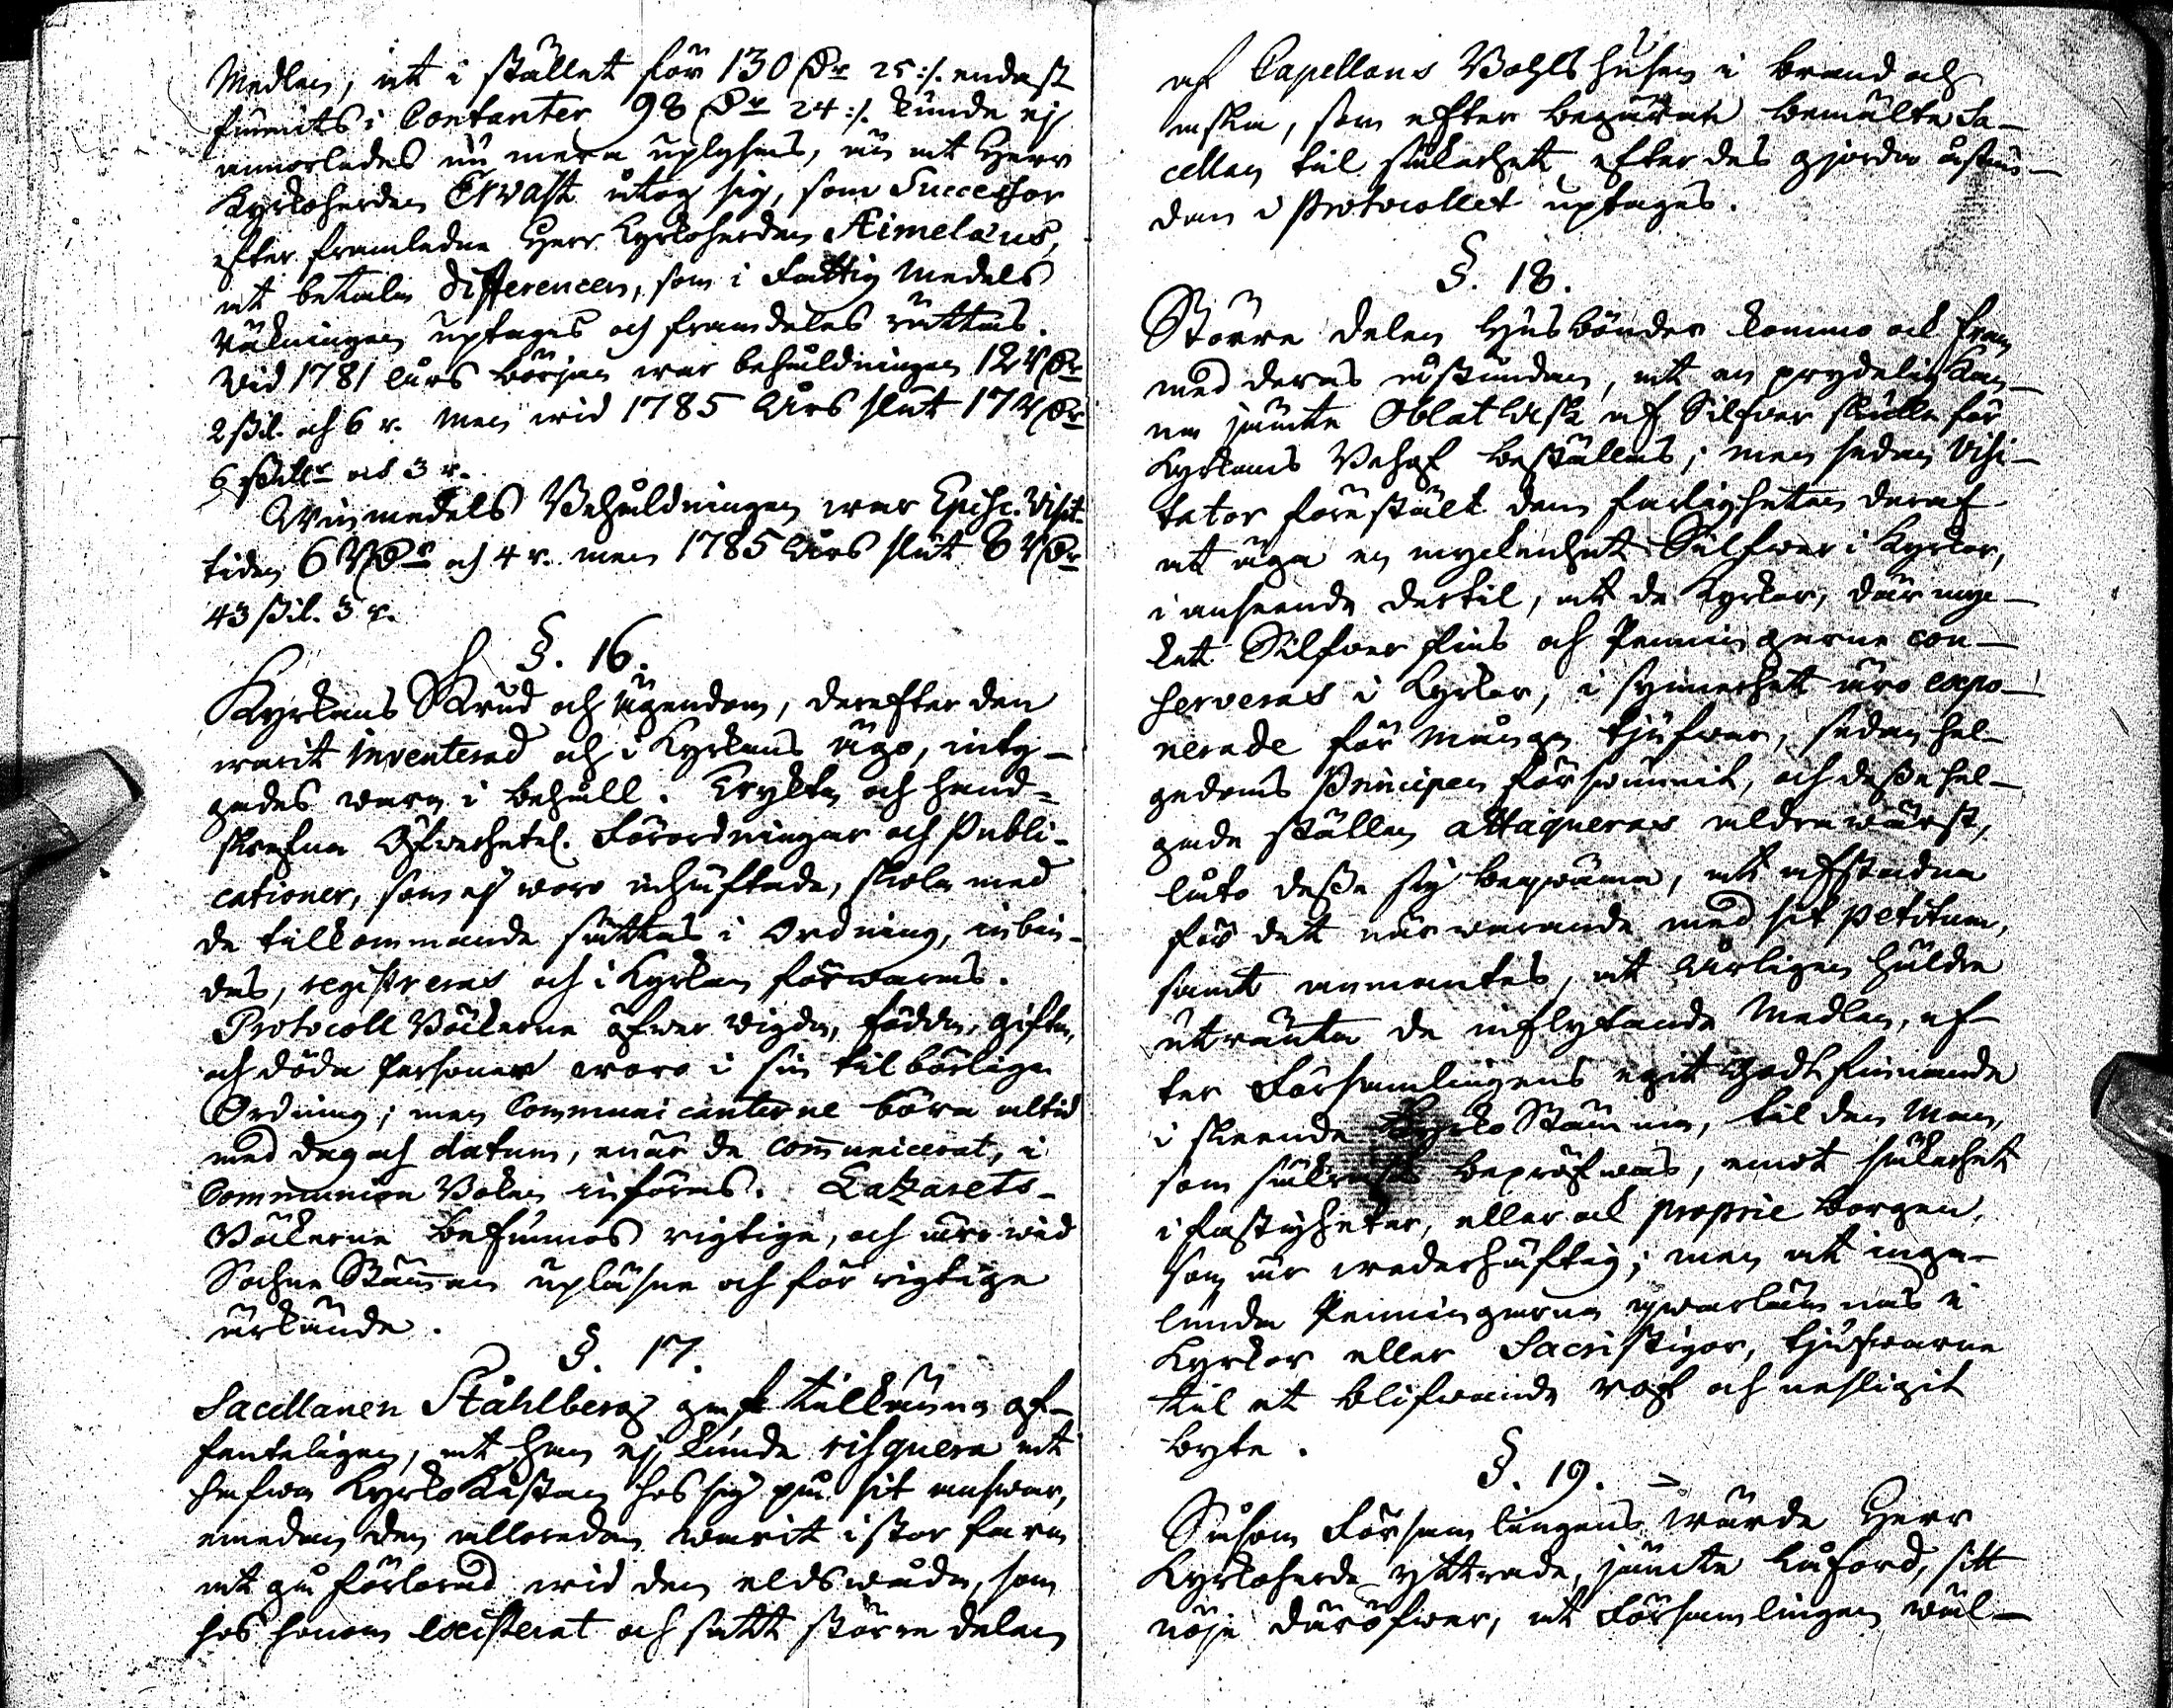 Medlen, at i stället för 130 Dr 25:/. endast
funnits i Contanter 98 Dr 24:/. kunde ej
annorledes nu mera uplysas, än at Herr
Kyrkoherden Ervast åtog sig, som Successor
efter framledne Herr Kyrkoherden Aimelæus,
at betala differencen, som i Fattig Medels
räkningen uptages och framdeles rättas.
Vid 1781 Års början war behåldningen 12 RDr
2 skil. och 6 r. men wid 1785 Års slut 17 RDr
6 skillr och 3 r.
Winmedels Behåldningen war Episc. Visit.
tiden 6 RDr och 4 r. men 1785 Års slut 8 RDr
43 skil. 3 r.
§. 16.
Kyrkans Skrud och Ägendom, derefter den
warit inventerad och i Kyrkans ägo, inty-
gades wara i behåll. Tryckta och hand-
skrefna Öfwerhetel. Förordningar och Publi-
cationer, som ej woro inhäftade, skola med
de tillkommande sättas i Ordning, inbin-
das, registreras och i Kyrkan förwaras.
Protocoll Böckerne öfwer wigda, födda, gifta,
och döda Personer woro i sin tilbörliga
Ordning; men Communicanterne böra altid
med dag och datum, enär de com̄unicerat, i
Communion Boken införas. Lazarets-
Böckerne befunnos rigtige, och äro wid
Sockne Stäm̄an upläsne och för rigtige
ärkände.
§. 17.
Sacellanen Ståhlberg gaf tillkänna of-
fenteligen, at han ej kunde risquera at
hafwa Kyrko Kistan hos sig på sit answar,
emedan den alloredan warit i stor fara
at gå förlorad wid den eldswåda, som
hos honom existerat och satt större delen
af Capellans Bohls husen i brand och
aska, som efter begäran bemälte Sa-
cellan til säkerhet efter des gjorda åstun-
dan i Protocollet uptages.
§. 18.
Större delen Husbönder kommo ock fram
med deras åstundan, at en prydelig Kan-
na jämte Oblat Ask af Silfwer skulle för
Kyrkans Behof beställas; men sedan Visi-
tator förestält dem farligheten deraf
at äga en myckenhet Silfwer i Kyrkor,
i anseende dertil, at de Kyrkor, där myc-
ket Silfwer fins och Penningarne con-
serveras i Kyrkor, i synnerhet äro expo-
nerade för många tjufwar, sedan hel-
gedoms Principen förswunnit, och dessa hel-
gade ställen attaqueras aldrawärst,
läto desse sig beqwäma, at afstadna
för det närwarande med sit petitum,
samt anmantes, at årligen häldre
utränta de inflytande Medlen, ef-
ter Församlingens egit godtfinnande
i skeende Kyrko Stämma, til den Man,
som säkrast bepröfwas, emot säkerhet
i fastigheter, eller ock proprie borgen,
som är wederhäftig; men at inga-
lunda Penningarna qwarlämnas i
Kyrkor eller Sacristigor, tjufwarne
til et blifwande rof och nesligit
byte.
§. 19.
Såsom Församlingens wärde Herr
Kyrkoherde yttrade, jämte Låford, sitt
nöje däröfwer, at Församlingen wäl-